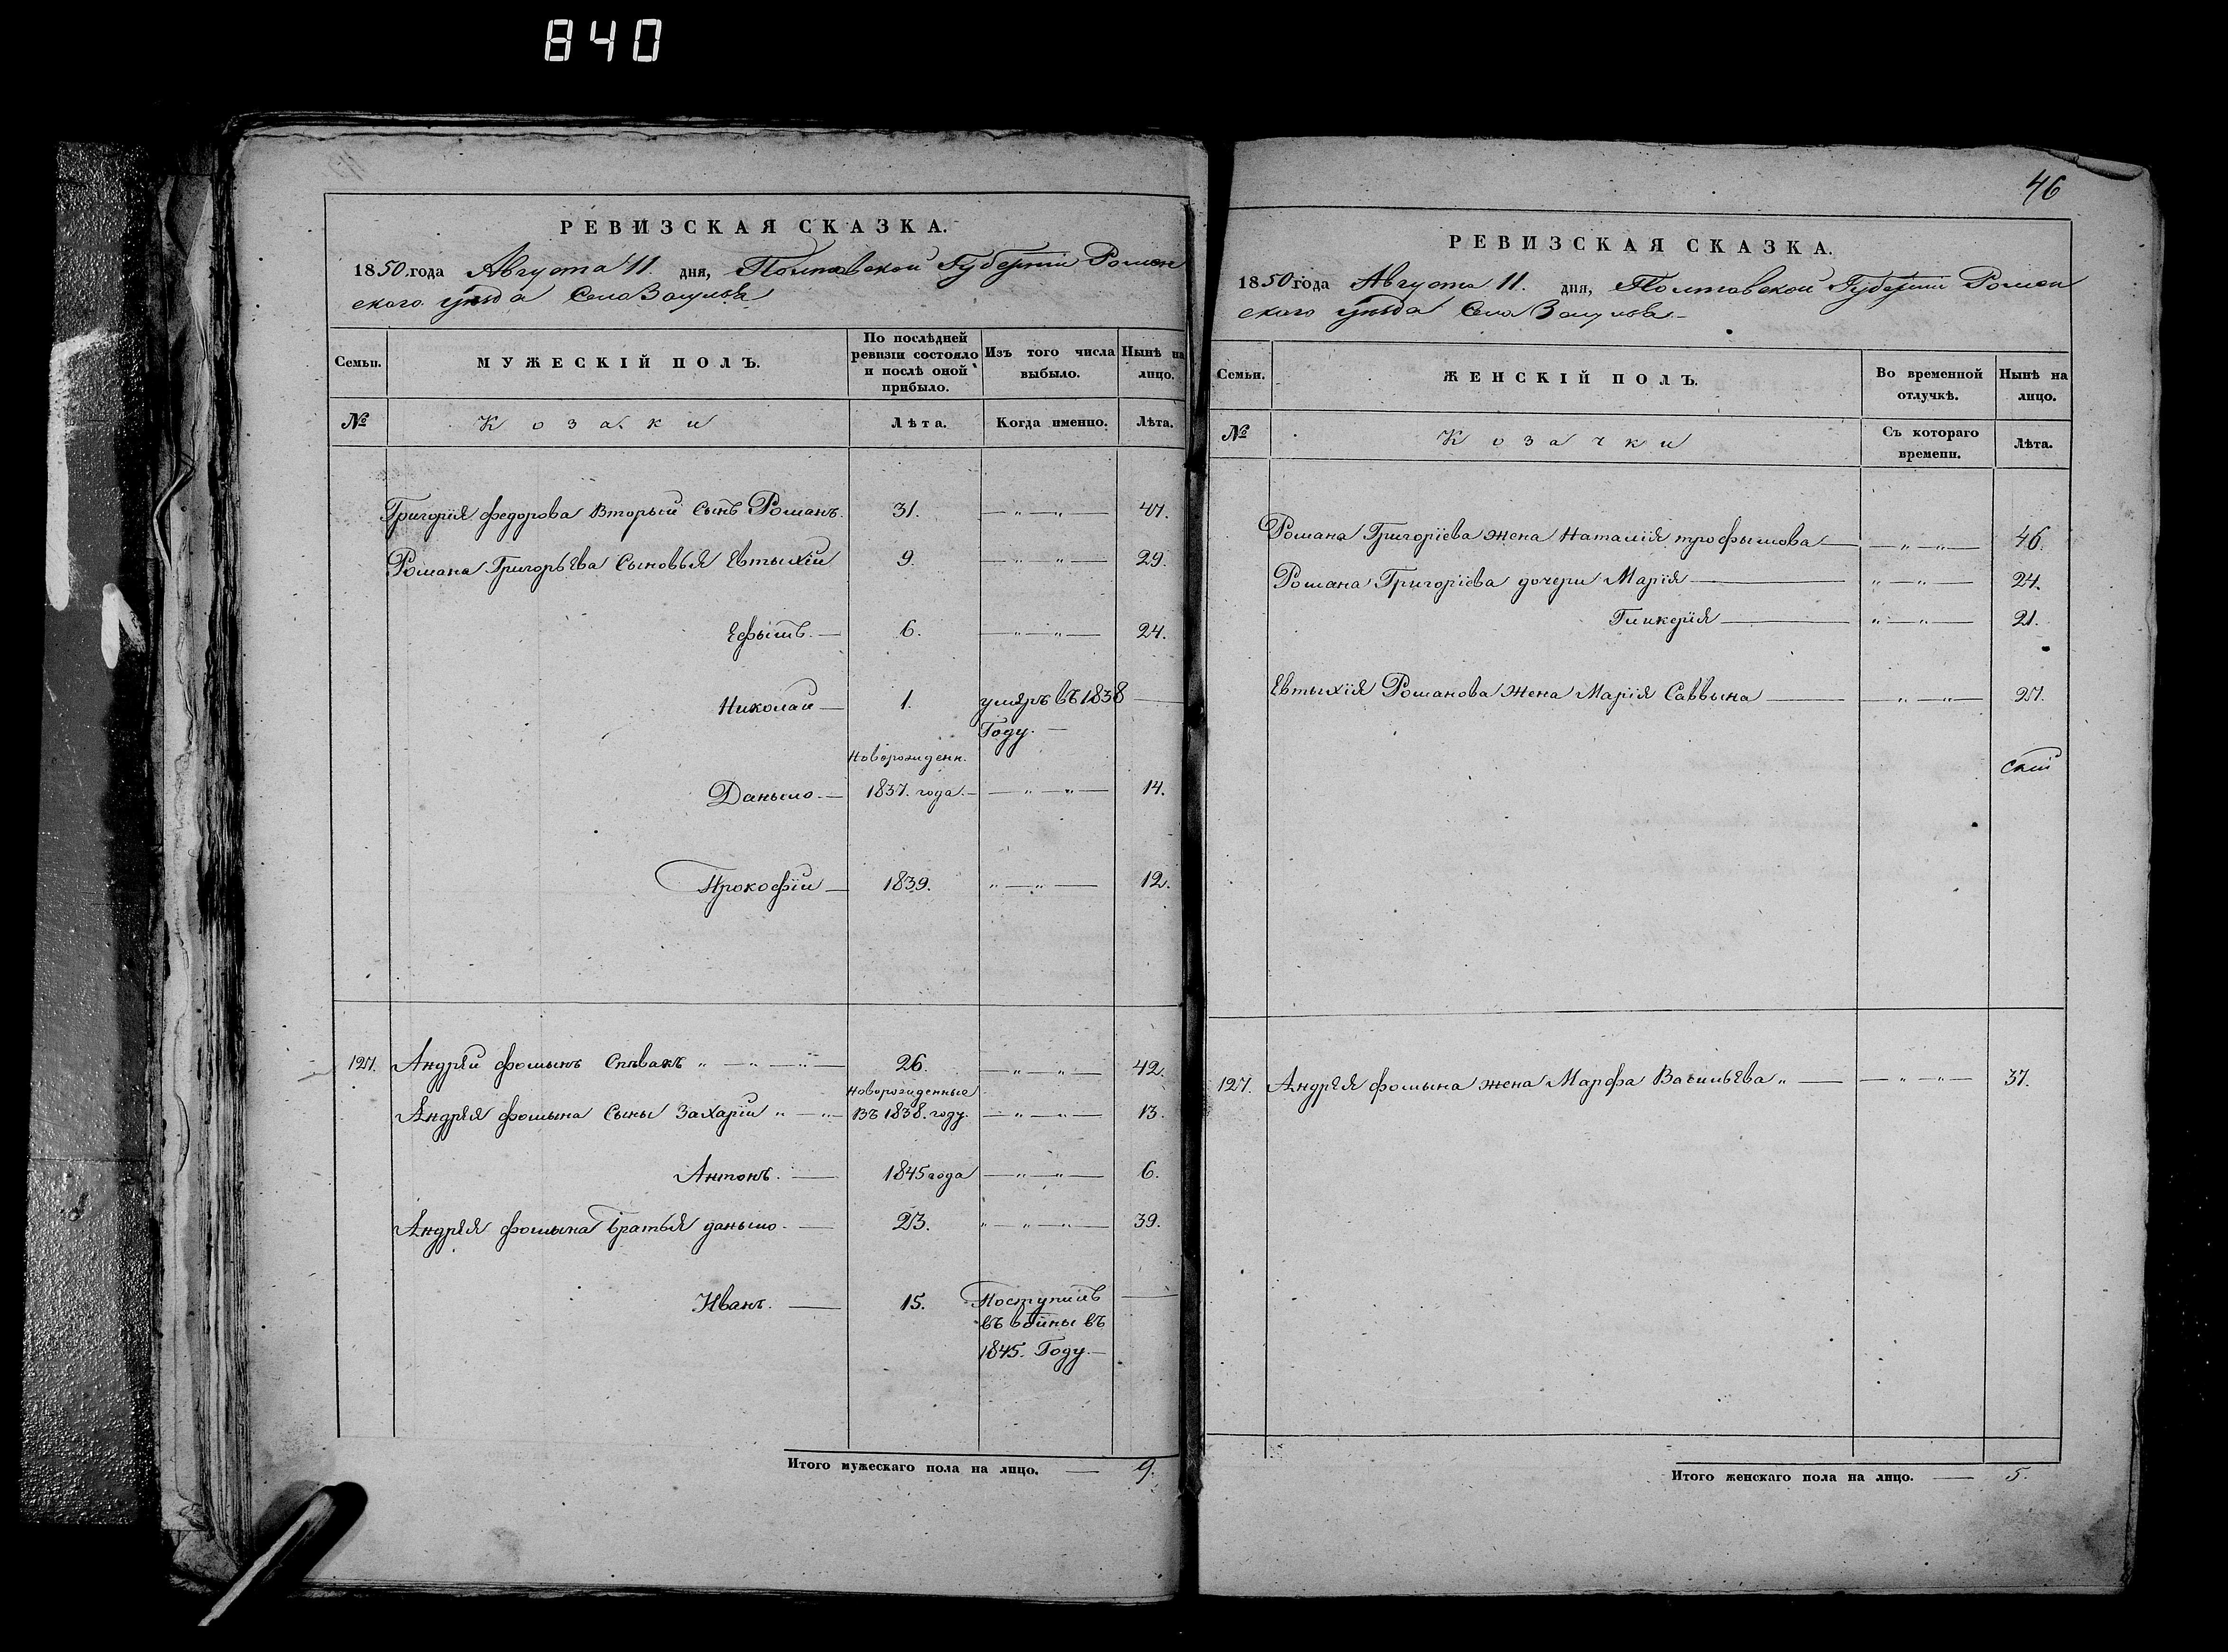 840
РЕВИЗСКАЯ СКАЗКА.
1850 года Августа 11. дня, Полтавской Губерніи Ромен
ского уѣзда Села Засулья
Семьи. МУЖЕСКІЙ ПОЛЪ. По послѣдней ревизіи состояло и послѣ оной прибыло. Изъ того числа выбыло. Нынѣ на лицо.
№ Козаки Лѣта. Когда именно. Лѣта.
Григорія федорова Вторый Сынъ Романъ. 31. — " — " — 47.
Романа Григорьева Сыновья Евтыхій 9. — " — " — 29.
Ефымъ. — 6. — " — " — 24.
Николай — 1. умеръ въ 1838 —
Году. —
Новорожденн.
Даныло. — 1837. года. — — " — " — 14.
Прокофій — 1839. " — " — 12.
127. Андрей фомынъ Спѣвакъ " — " — " — 26. — " — " — 42.
Новорожденные
Андрея фомына Сыны Захарій " — " — Въ 1838. году. — " — " — 13.
Антонъ. — 1845 года — " — " — 6.
Андрея фомына братья даныло. — 23. " — " — " — 39.
Иванъ. — 15. Поступилъ —
въ воины въ
1845. Году. —
Итого мужескаго пола на лицо. — 9.
46
РЕВИЗСКАЯ СКАЗКА.
1850 года Августа 11. дня, Полтавской Губерніи Ромен
ского уѣзда Села Засулья. —
Семьи. ЖЕНСКІЙ ПОЛЪ. Во временной отлучкѣ. Нынѣ на лицо.
№ Козачки Съ котораго времени. Лѣта.
Романа Григоріева жена Наталія трофымова — — " — " — 46.
Романа Григоріева дочери Марія — " — " — 24.
Гликерія — " — " — 21.
Евтыхія Романова жена Марія Саввына — — " — " — 27.
127. Андрея фомына жена Марфа Васильева " — — " — " — 37.
Итого женскаго пола на лицо. — 5.